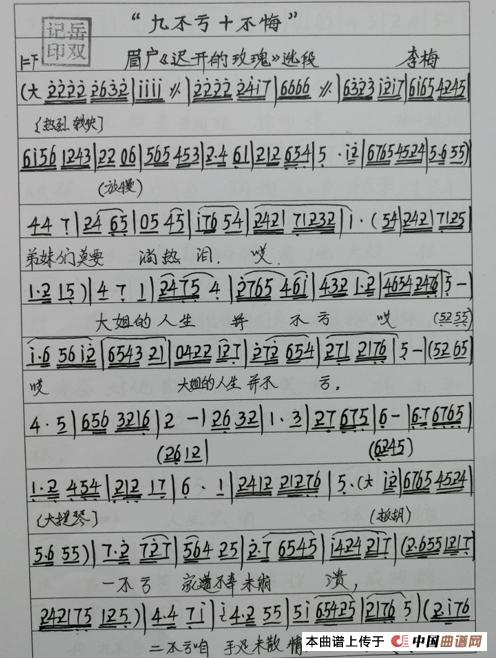 "九不亏十不悔"
岳双记印
1=F 眉户《迟开的玫瑰》选段 李梅
(大 2222 2632 | 1111 | 2222 2417 | 6666 | 6323 1217 | 6165 4245 |
(热烈 轻快)
6156 1243 | 22 06 | 565 453 | 2·4 61 | 212 654 | 5 · 12 | 6765 4524 | 5·6 55)
(放慢)
44 7 | 24 65 | 05 45 | 176 54 | 242 | 71232 | 1 · (54 | 242 7125
弟妹们莫要 淌热泪. 哎
1·2 15) | 4 7 1 | 2475 4 | 2765 461 | 432 1·2 | 4654 246 | 5 -
大姐的人生 并 不亏 哎 (52 55)
1·6 56 12 | 6543 21 | 0422 127 | 272 654 | 271 2176 | 5 - | (52 65
哎 大姐的人生 并不 亏.
4 · 5 | 656 3216 | 2 - | 26 32 | 1 · 3 | 27 675 | 6 - | 6·7 6765
(26 12 | (6245)
1·2 454 | 212 17 | 6 · 1 | 2412 21276 | 5·(大 12 | 6765 4524
(大提琴) (板胡)
5·6 55) | 7·2 727 | 564 25 | 2·7 6545 | 1424 217 | (2·655 1217
一不亏 家遭不幸未崩 溃,
242175 125) | 4·4 71 | 14·2 55 | 51 65425 | 2176 5 | (2·176
二不亏咱 手足未散 情
本曲谱上传于 中国曲谱网